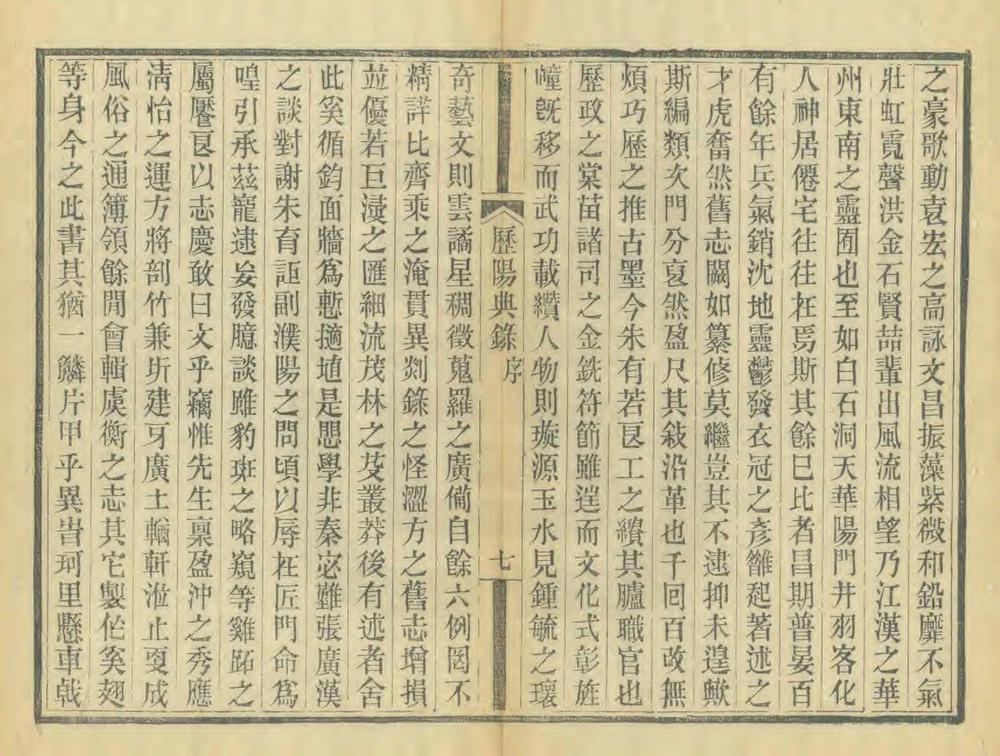 之豪歌動袁宏之高詠文昌振藻紫微和鉛靡不氣
壯虹霓聲洪金石賢喆輩出風流相望乃江漢之華
州東南之靈囿也至如白石洞天華陽門井羽客化
人神居僊宅往往在焉斯其餘已比者昌期普晏百
有餘年兵氣銷沈地靈鬱發衣冠之彥雒起著述之
才虎奮然舊志闕如纂修莫繼豈其不逮抑未遑歟
斯編類次門分裒然盈尺其敍沿革也千回百改無
煩巧歷之推古墨今朱有若良工之繢其臚職官也
歷政之棠苗諸司之金銑符節雖遅而文化式彰旌
幢旣移而武功載纘人物則璇源玉水見鍾毓之瓌
歷陽典錄
序
七
奇藝文則雲譎星稠徵蒐羅之廣僃自餘六例罔不
精詳比齊乘之淹貫異剡錄之怪澀方之舊志增損
並優若巨浸之匯細流茂林之芟叢莽後有述者舍
此奚循鈞面牆爲慙擿埴是思學非秦宓難張廣漢
之談對謝朱育詎副濮陽之問頃以辱在匠門命爲
喤引承茲寵逮妄發臆談雖豹斑之略窺等雞跖之
屬饜良以志慶敢曰文乎竊惟先生稟盈沖之秀應
淸怡之運方將剖竹兼圻建牙廣土輶軒涖止亟成
風俗之通簿領餘閒會輯虞衡之志其它製作奚翅
等身今之此書其猶一鱗片甲乎異旹珂里懸車戟